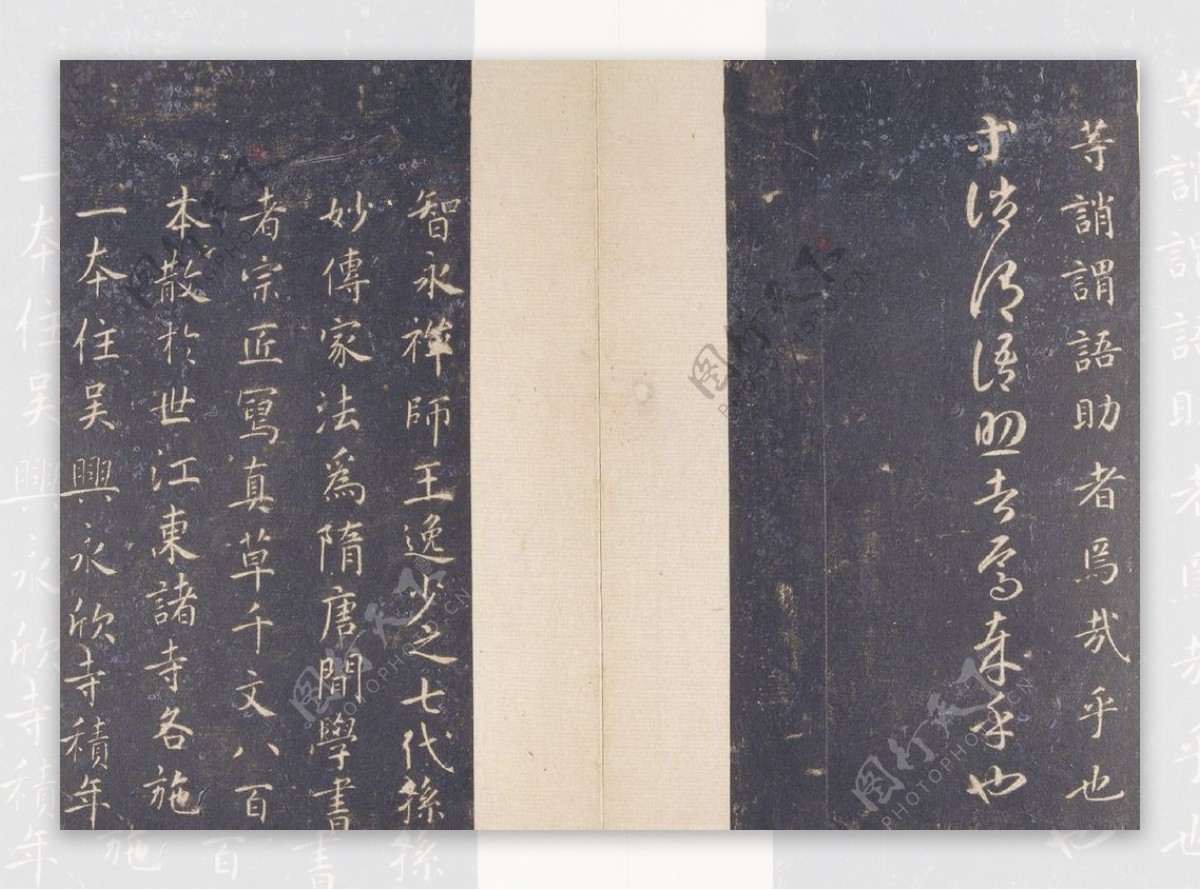 等誚謂語助者焉哉乎也
等誚謂語助者焉哉乎也
智永禅師王逸少之七代孫
妙傳家法爲隋唐間學書
者宗匠寫真草千文八百
本散於世江東諸寺各施
一本住吳興永欣寺積年
图行天下
PHOTOPHOTO.CN